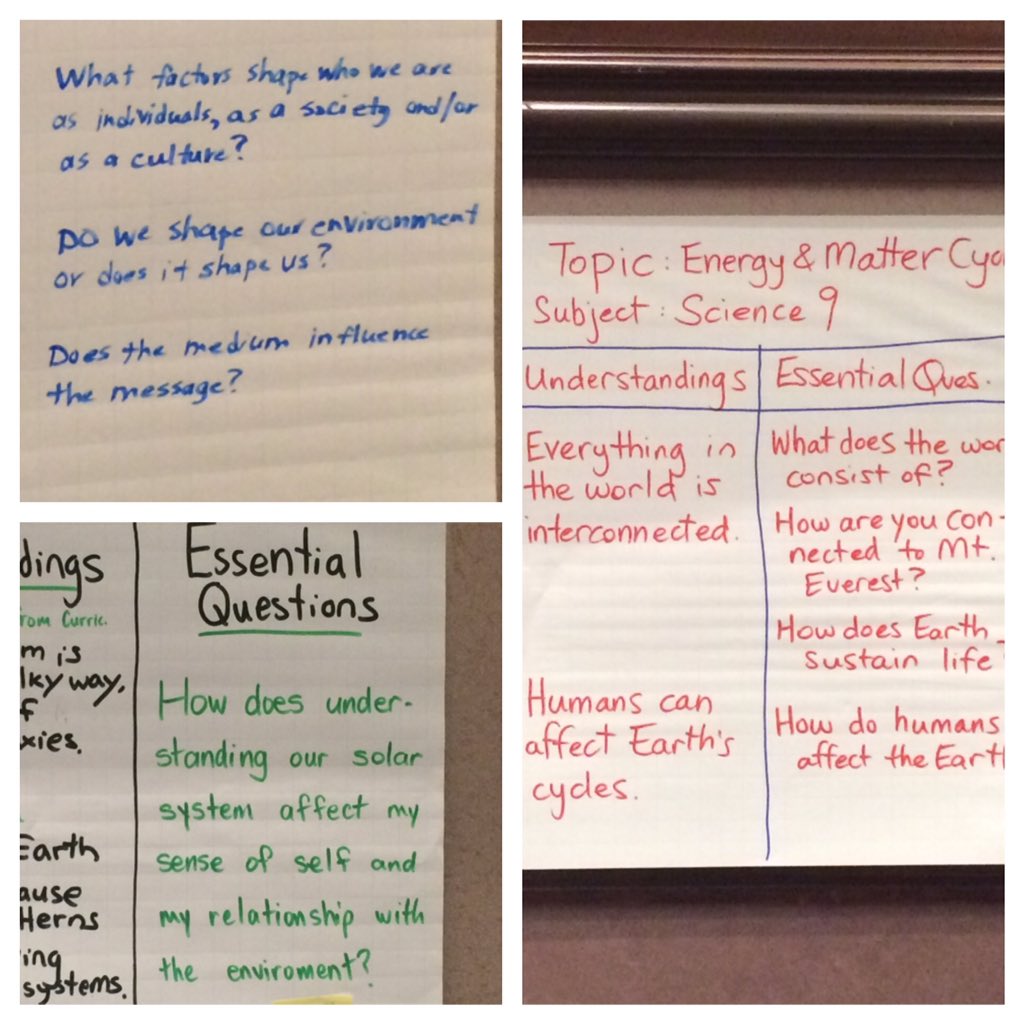 What factors shape who we are
as individuals, as a society and/or
as a culture?
Do we shape our environment
or does it shape us?
Does the medium influence
the message?
Topic: Energy & Matter Cyc
Subject: Science 9
Understandings
Essential Ques.
Everything in
the world is
interconnected.
Humans can
affect Earth's
cycles.
What does the wor
consist of?
How are you con-
nected to Mt.
Everest?
How does Earth
sustain life
How do humans
affect the Eart
dings
rom Curric.
m is
lky way,
f
xies.
Earth
ause
tterns
ing
systems.
Essential
Questions
How does under-
standing our solar
system affect my
sense of self and
my relationship with
the enviroment?